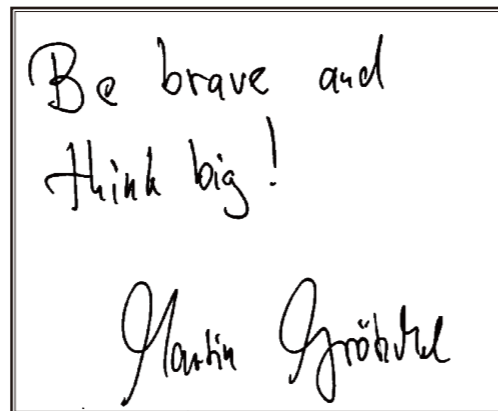 Be brave and
think big!
Martin Grötschel